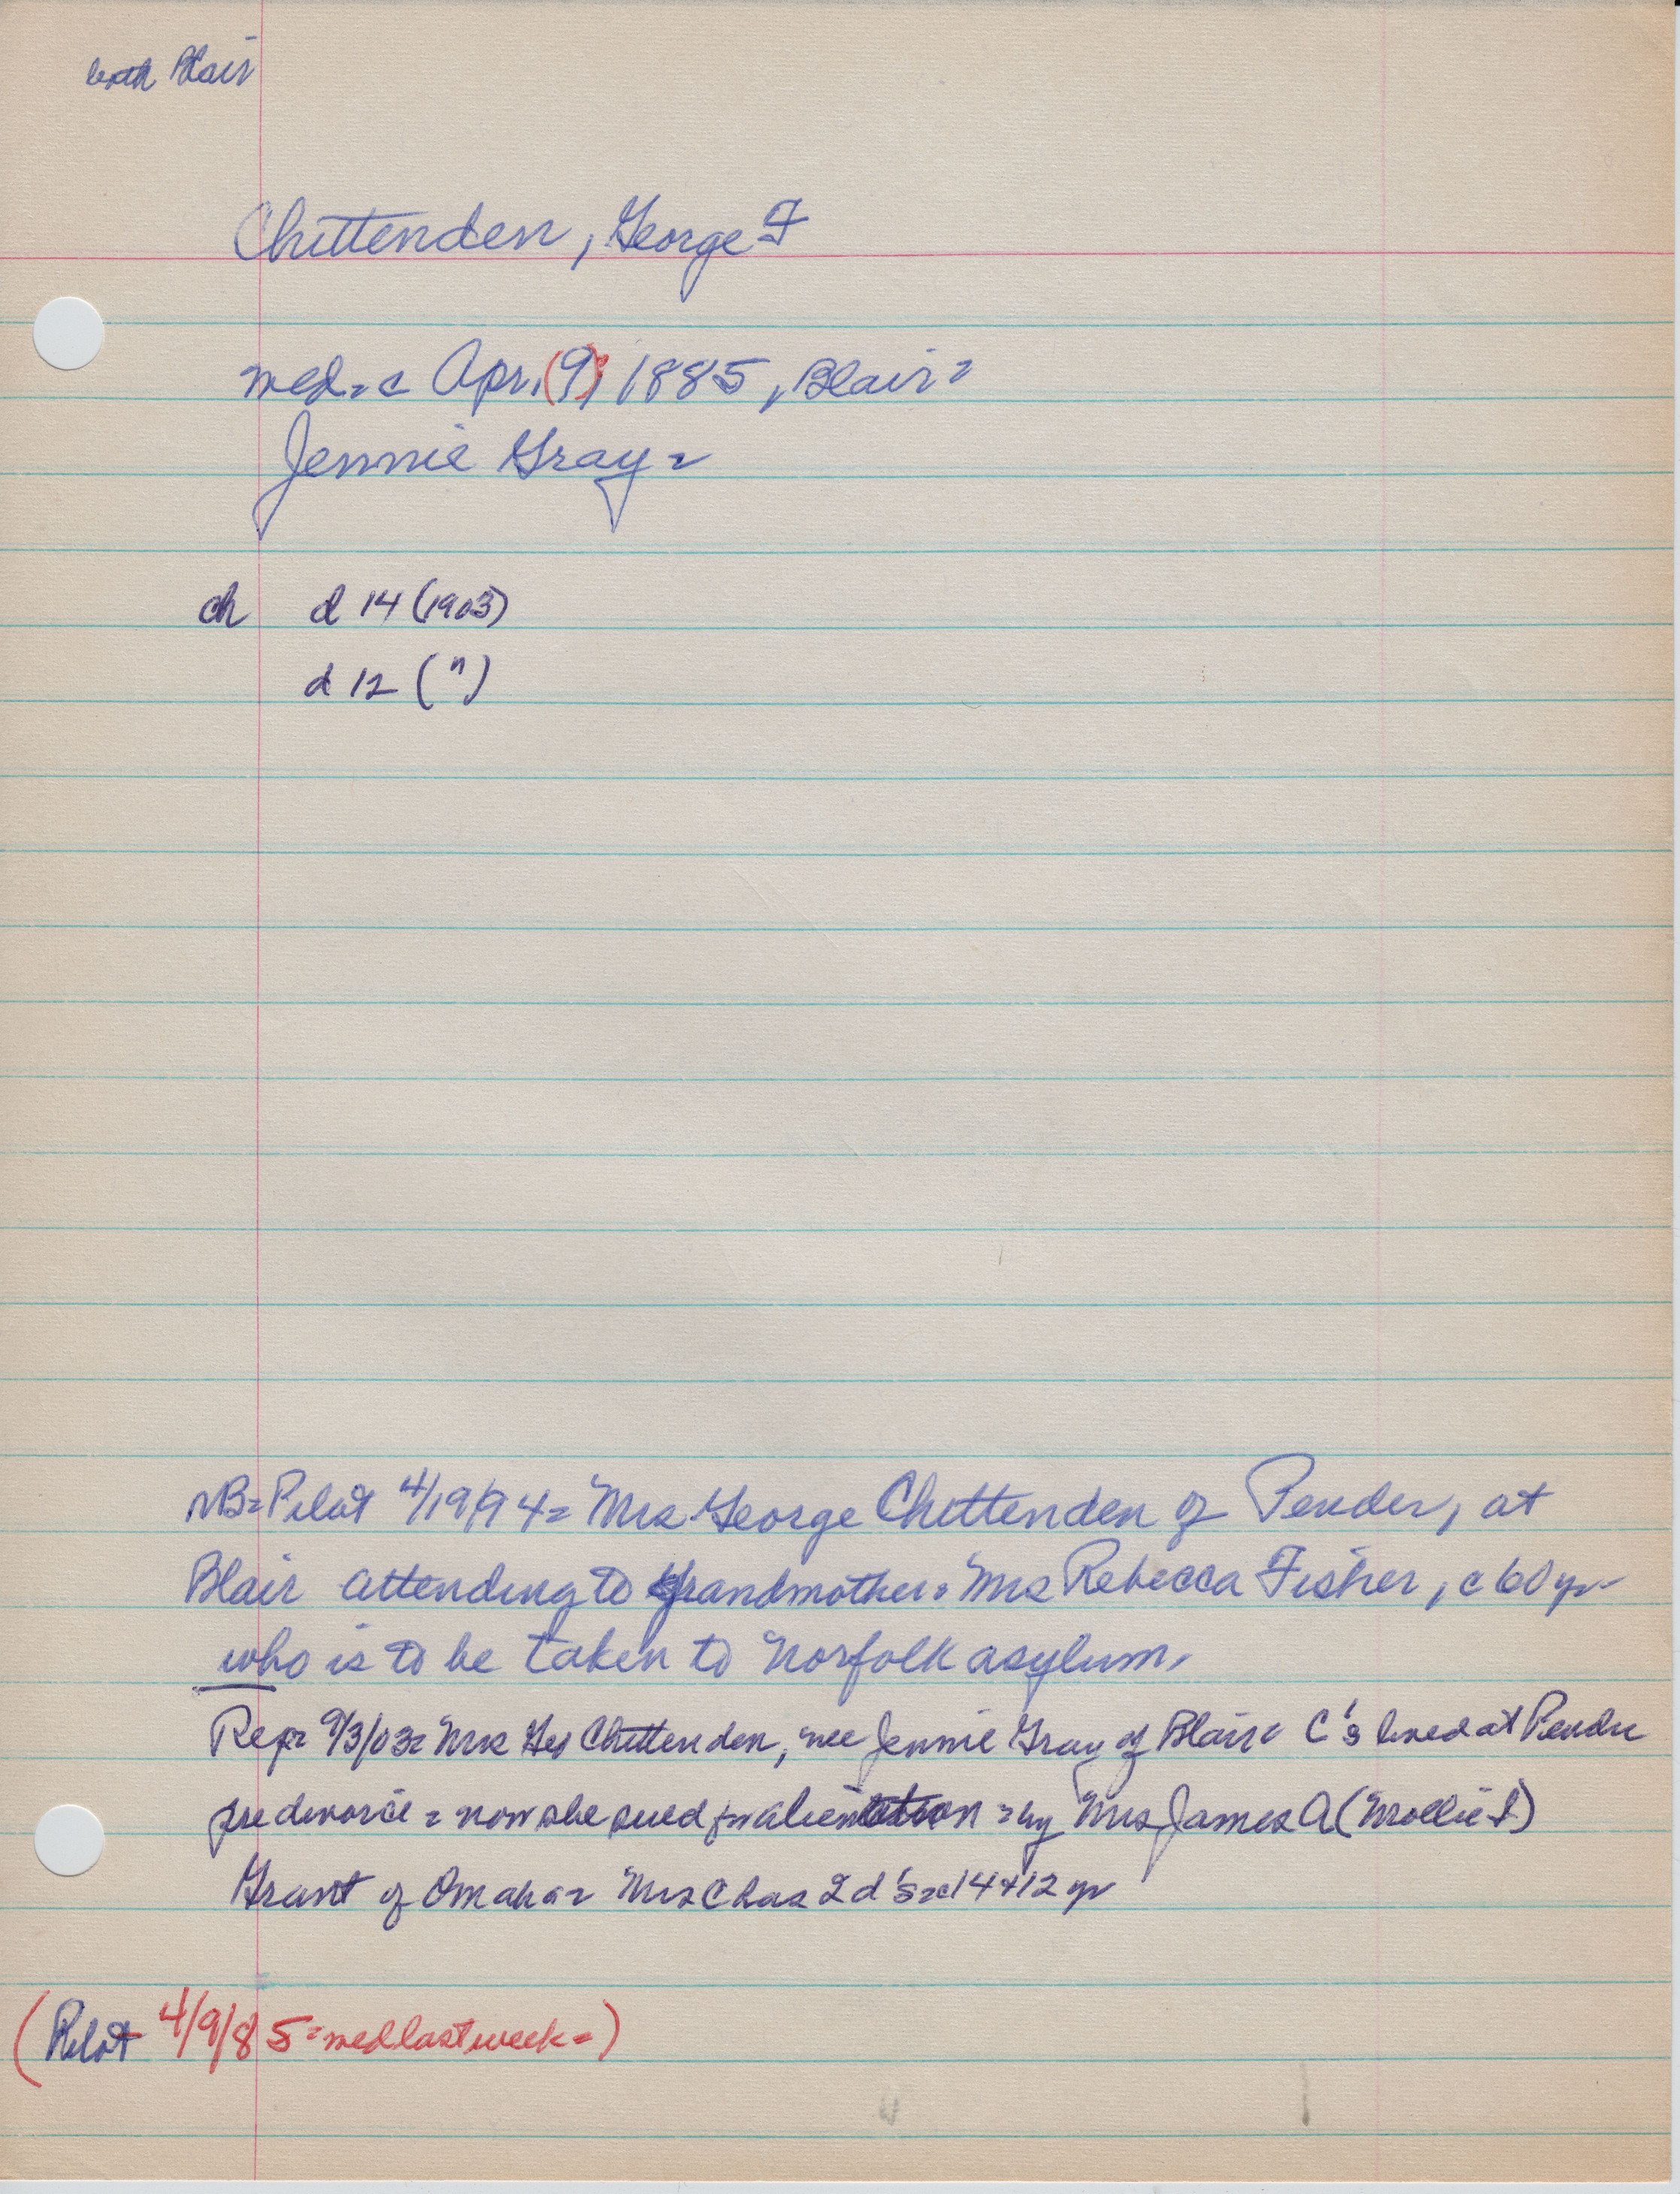 both Blair
Chittenden, George F
med = c Apr. (9) 1885, Blair =
Jennie Gray =
ch d 14 (1903)
d 12 (")
NB = Pilot 4/19/94 = Mrs George Chittenden of Pender, at
Blair attending to grandmother = Mrs Rebecca Fisher, c 60 yr
who is to be taken to Norfolk asylum.
Repr 9/3/03 = Mrs Geo Chittenden, nee Jennie Gray of Blair = C's lived at Pender
pre divorce = now she sued for alienation = by Mrs James A (Mollie I)
Grant of Omaha = Mrs Chas 2 d's = c 14 + 12 yr
(Pilot 4/9/85 = med last week =)